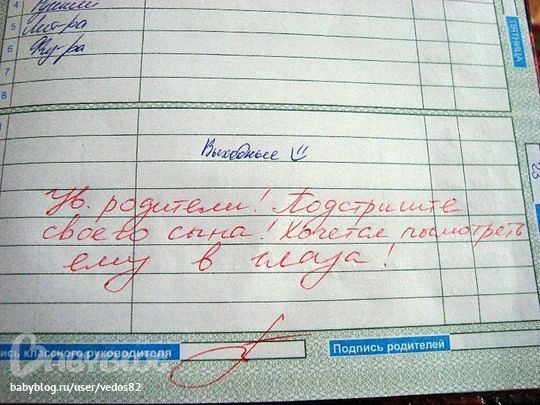 4
5 Лит-ра
6 Физ-ра
7
8
ПЯТНИЦА
Выходные
23
Ув. родители! Подстригите
своего сына! Хочется посмотреть
ему в глаза!
ись классного руководителя
Подпись родителей
babyblog.ru/user/vedos82